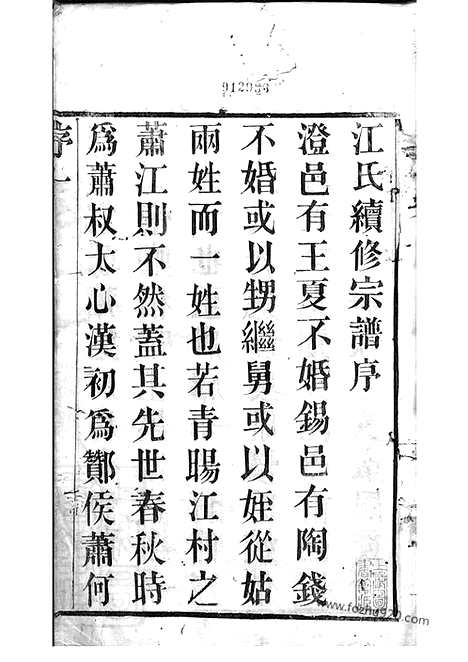 912983
江氏續修宗譜序
澄邑有王夏不婚錫邑有陶錢
不婚或以甥繼舅或以姪從姑
兩姓而一姓也若青暘江村之
蕭江則不然蓋其先世春秋時
為蕭叔大心漢初為酇侯蕭何
序一
www.fozhu920.com